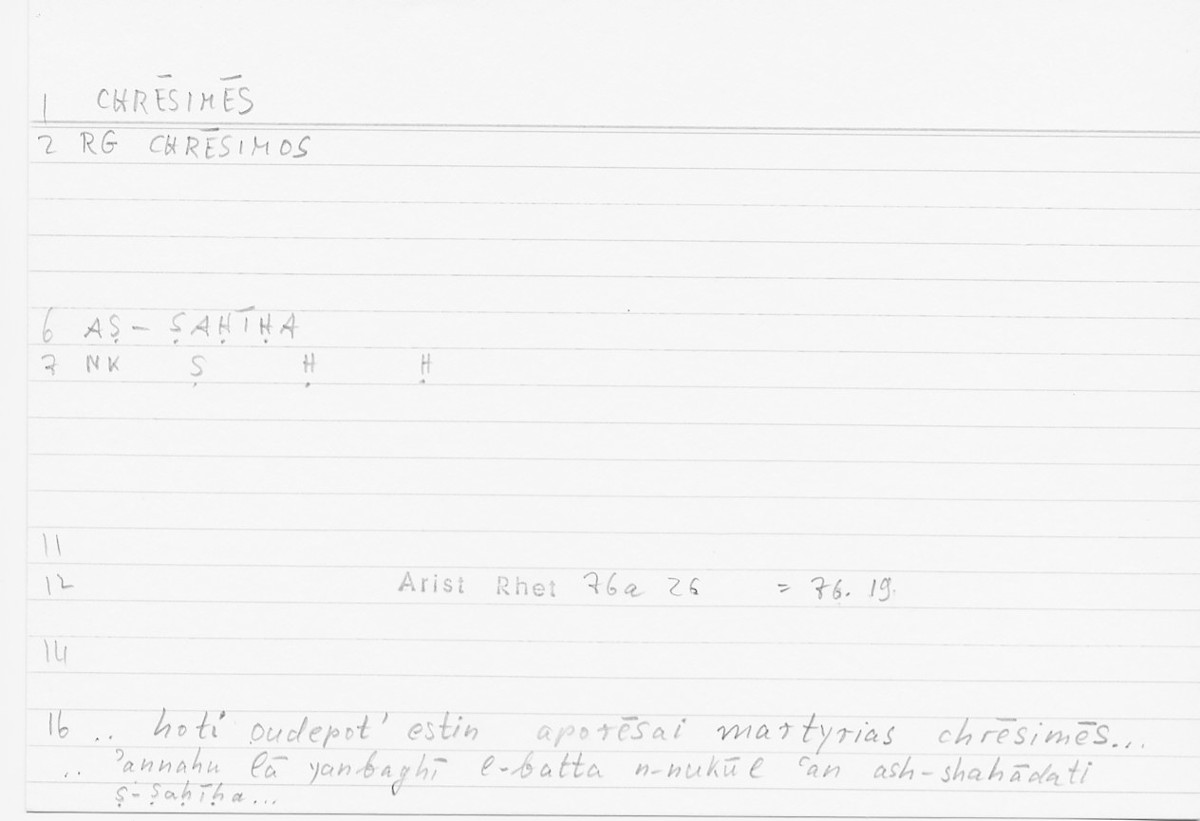 1 CHRĒSIMĒS
2 RG CHRĒSIMOS
6 AṢ- ṢAḤĪḤA
7 NK Ṣ Ḥ Ḥ
11
12 Arist Rhet 76a 26 = 76. 19.
14
16 .. hoti oudepot' estin aporēsai martyrias chrēsimēs...
.. ʾannahu lā yanbaghī l-batta n-nukūl ʿan ash-shahādati
ṣ-ṣaḥīḥa...